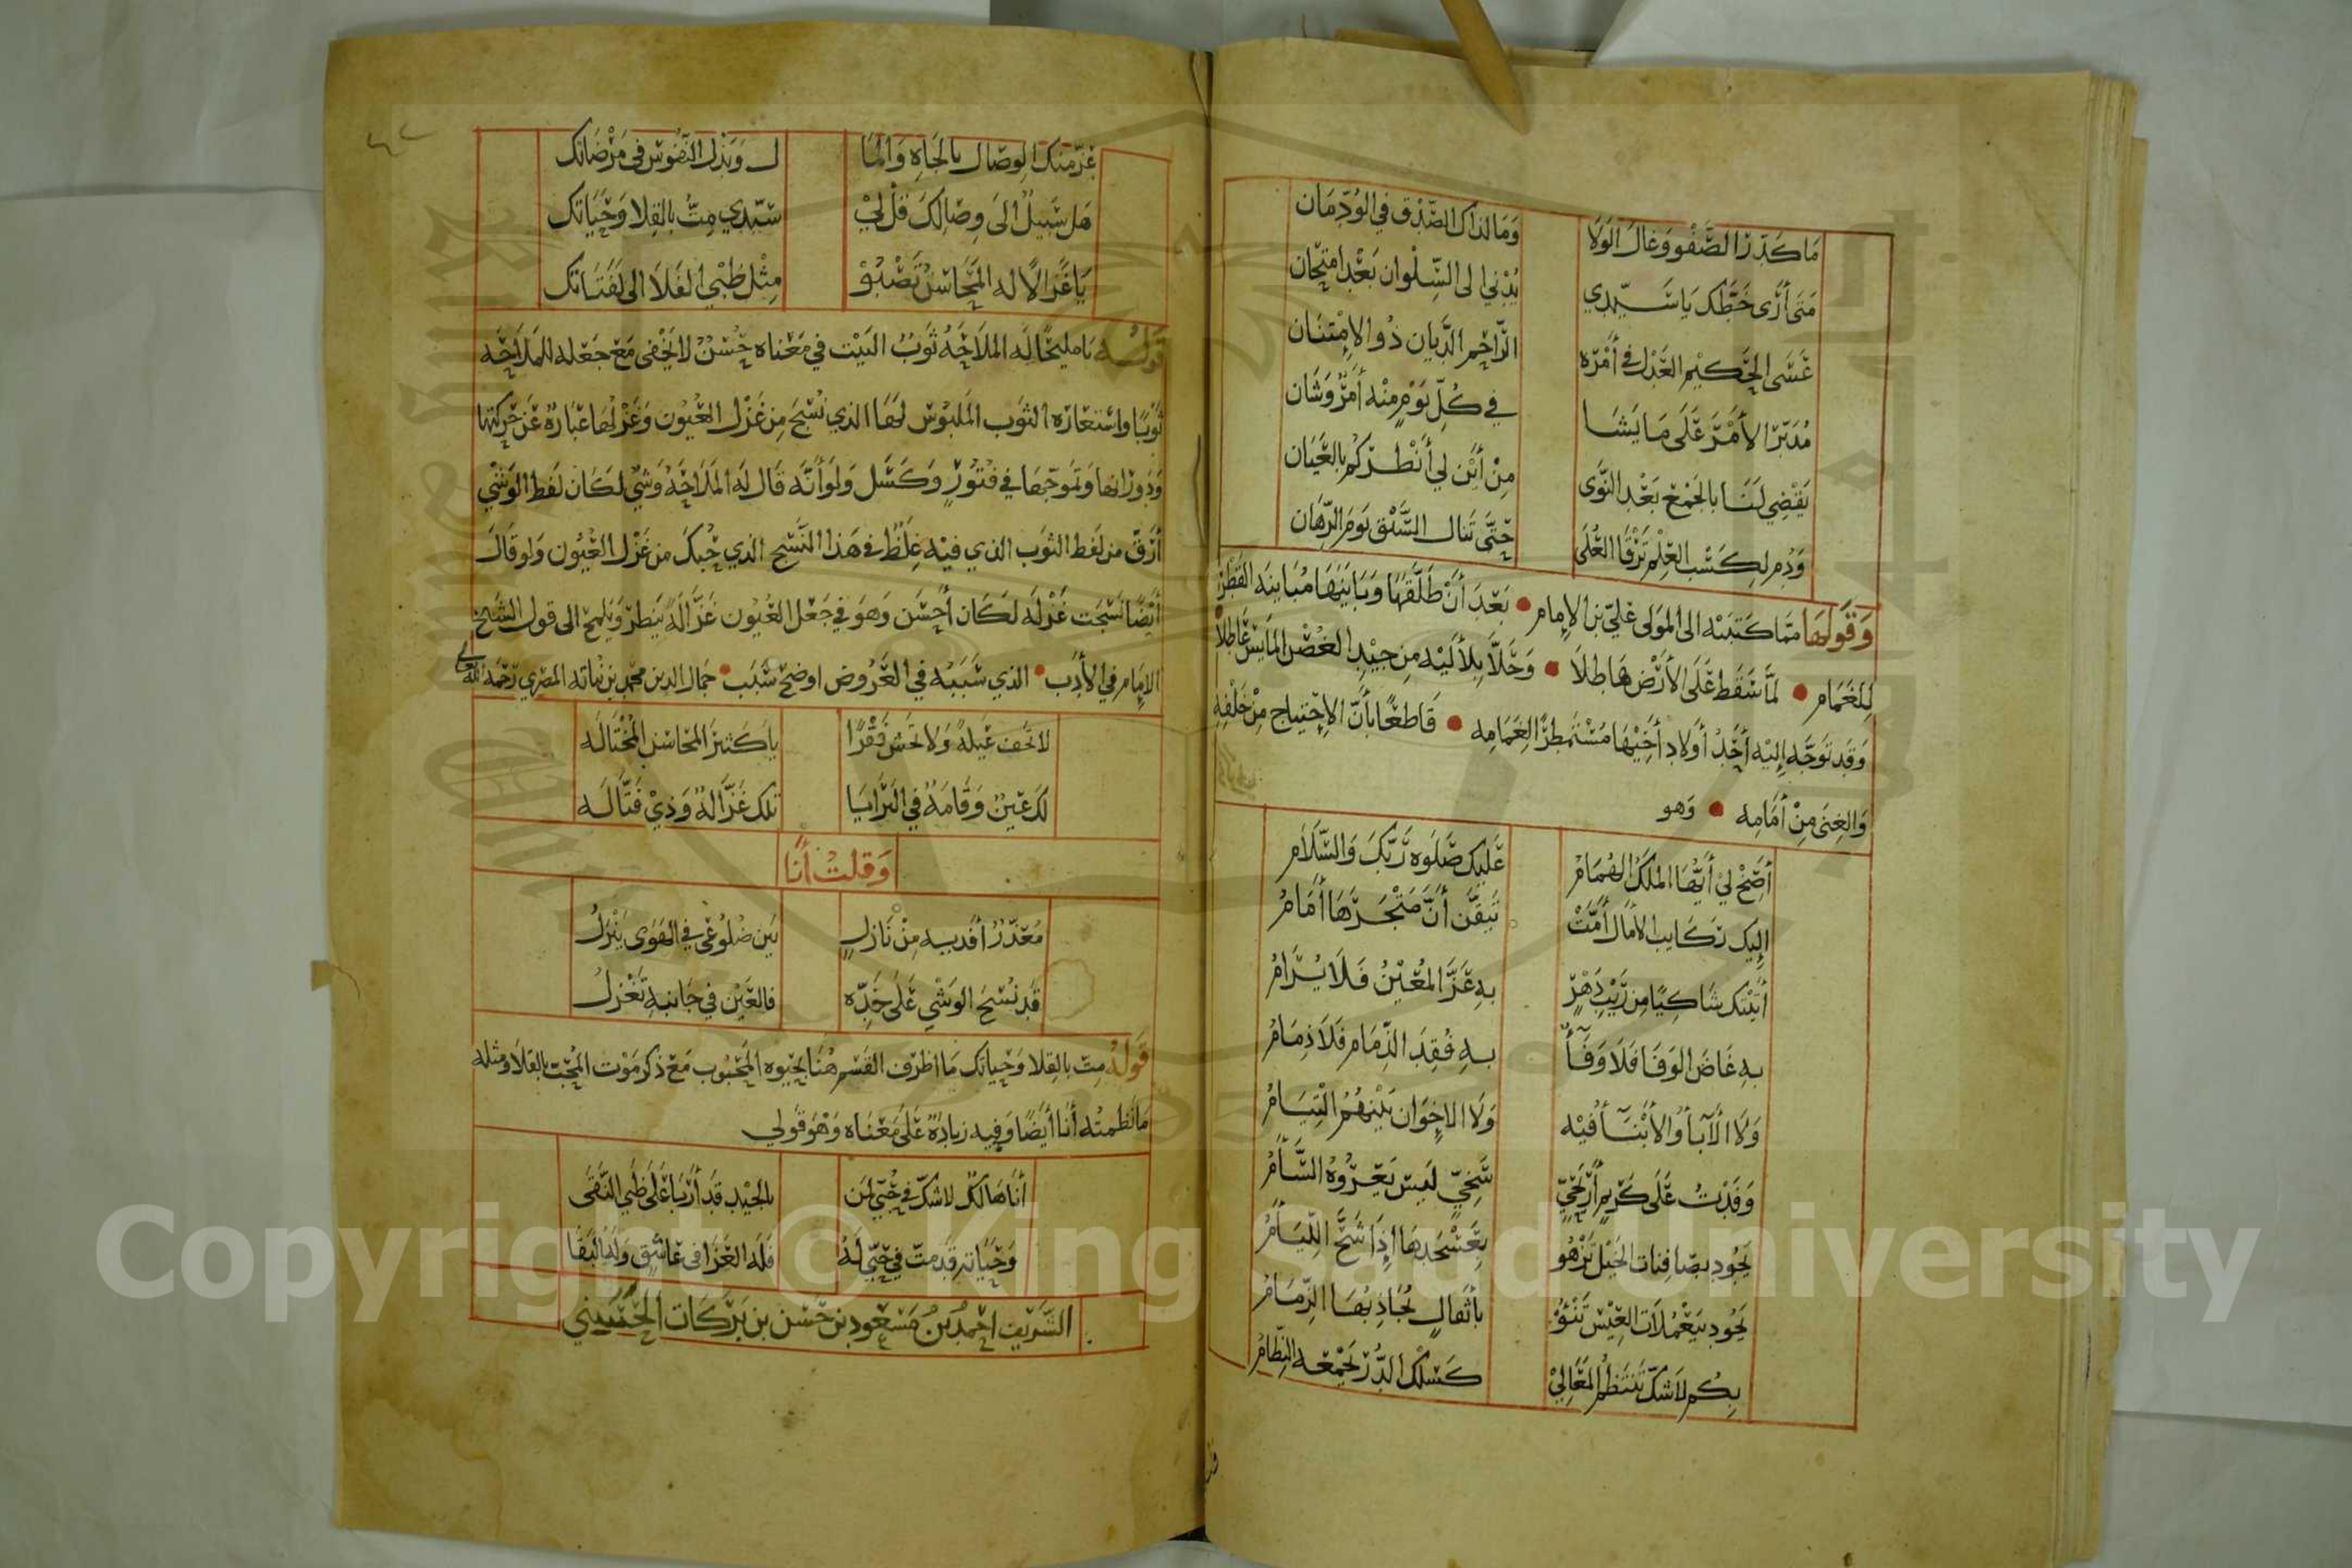 مَا كَدَّرَ الصَّفْوَ وَغَالَ الوَلَا وَمَا لذاكَ الصِّدْقِ في الوُدِّ مَان
مَتَى أرَى خَطَّك يَا سَيِّدِي يُدْنِي الى السِّلْوان بَعْدَ امتِحَان
عَسَى الحَكِيْمِ العَدْل في أمْرِه الرَّاحِمِ الدَّيَان ذُو الاِمْتِنَان
مُدَبّر الأَمْرَ عَلَى مَا يَشَا في كُلِّ يَوْمٍ مِنْه أمْرٌ وَشَان
يَقْضِي لَنَا بِالجَمْعِ بَعْدَ النَّوَى مِنْ أيْنَ لي أنْظركُمْ بالعَيَان
وَدُمْ لِكَسْب العِلْم تَرْقَا العُلَى حَتَّى تَنال السَّبْق يَوم الرِّهَان
وَقَولهَا ممَّا كَتَبَتْه الى المَولى عَليّ بن الإمام بَعْدَ أنْ طَلَّقَهَا وَبَايَنَهَا مُبَاينَة القَطْر
لِلغَمَام لَمَّا سَقَط عَلَى الأرْض هَاطِلاَ وَحَلاَّ بِلأَلَيْه مِن جيْدِ الغُصْن المَايس عَاطِلاً
وَقَد تَوَجَّه إليْه أحَدُ أولادِ أخِيْهَا مُسْتَمطِرًا لِغَمَامِه قَاطعًا بأنَّ الاِحْتِياج مِنْ خَلْفِه
وَالغِنَى مِنْ أمَامِه وَهو
أصِخْ لِي أيّهَا الملكُ الهُمَامُ عَلَيكَ صَلوه رَبّكَ وَالسَّلَامُ
إليك رَكَايب الآمَال أمَّتْ تَيَقَّن أنَّ مَتْجَرهَا أمَامُ
أتَيْتك شَاكِيًا مِن رَيْب دَهْرٍ بِهِ عَزَّ المُعِيْنُ فَلَا يُرَامُ
بِهِ غَاضَ الوَفَا فَلَا وَفَآءٌ بِهِ فُقِدَ الذِّمَام فَلَا ذِمَامُ
وَلَا الآبآءُ وَالأبْنَآءُ فيْه وَلَا الاخوَان بَيْنهُمُ التِيَامُ
وَفَدْتُ عَلَى كَرِيمٍ أرْيَحِيٍّ سَخِيٍّ لَيس يَعْرُوهُ السَّآمُ
يَجُود بصَافنات الخَيْل تَزْهُو بعَسْجَدهَا إذَا شَحَّ اللِّيَامُ
يَجُود بيَعْمَلَات العِيْس تَنْؤُ بأثقالٍ يُجَاذبُهَا الزِّمَامُ
بِكُم لاَ شَكّ تَنْتَظمُ المَعَالي كَسلْك الدُّرّ يَجْمَعه النِّظَامُ
عَزّ مِنك الوصَال بالجَاهِ وَالمَا ل وَبَذْل النّفُوس في مَرْضَاتك
هَل سَبيلٌ الَى وصَالِكَ قُل لِيْ سَيّدي مِتُّ بالقِلا وَحَيَاتك
يَا غَزالاً لَه المَحَاسنُ تَصْبُوْ مِثْل ظَبْي الفَلَا الى لَفَتَاتك
قَولُه يَا مليحًا لَه المَلَاحَةُ ثَوبُ البَيْت في مَعْناه حُسْنٌ لا يَخْفى مَع جَعْله للمَلَاحَة
ثَوبًا واسْتعَارَة الثوَب المَلبُوْس لهَا الذي نُسْجَ مِن غَزْل العُيُون وَغَزْلهَا عبَارَة عَن حَركتها
وَدَوَرَانهَا وَتموّجهَا في فتُوْرٍ وَكَسَل وَلَو أنَّه قَال لَه المَلَاحَةُ وَشيٌ لَكَان لَفظ الوَشْي
أرَقّ من لَفظ الثوب الذي فيْه غِلَظ في هَذا النَّسْج الذي حُبكَ من غَزْل العُيُون وَلو قَال
أيْضًا نَسَجَت غَزْلَه لَكَان أحْسَن وَهوَ في جَعْل العُيُون غَزَّالَةً يَنظر وَيَلمح الى قول الشَيخ
الإمَام في الأدَب الذي سَبَبُه في العَرُوض اوضحُ سَبَب جَمَال الدين محمّد بن نُبَاتَه المصري رَحمَه الله تعالى
لا تَخَف عَيلةً وَلا تَخْشَ فَقْرًا يا كَثيرَ المَحَاسن المُخْتَالَه
لَك عَينٌ وَقَامَةٌ في البَرَايَا تلك غَزَّالةٌ وَذيْ فَتَّالَه
وَقلتُ أنَا
مُعَذّرٌ أفديه مِنْ نَازلٍ بَين ضُلُوعي في الهَوَى يَنْزلُ
قَد نُسْجَ الوَشْي عَلَى خَدِّه فالعَيْن في جَانبه تَغْزلُ
قَولُهُ مِتُّ بالقِلا وَحَيَاتك مَا اظرَف القَسَم هُنا بحَيوه المَحْبُوب مَعْ ذكر مَوْت المُحِبّ بالقلاَ وَمثله
مَا نَظمتُه أنَا أيْضًا وَفِيه زيَادَةٌ عَلَى مَعْنَاه وَهْوَ قولي
أنَا هَالكٌ لا شَكّ في حُبّي لمَن بالجِيْد قَد أرْبَا عَلَى ظَبي النَّقَى
وَحَيَاته قَد مِتّ في حُبّي لَهُ فَلَه العَزَا في عَاشقٍ وَلَهُ البَقَا
الشَّريف احْمَدُ بْنُ مَسْعُود بن حَسَن بن بَرَكَات الحَسَنِي
Copyright © King Saud University